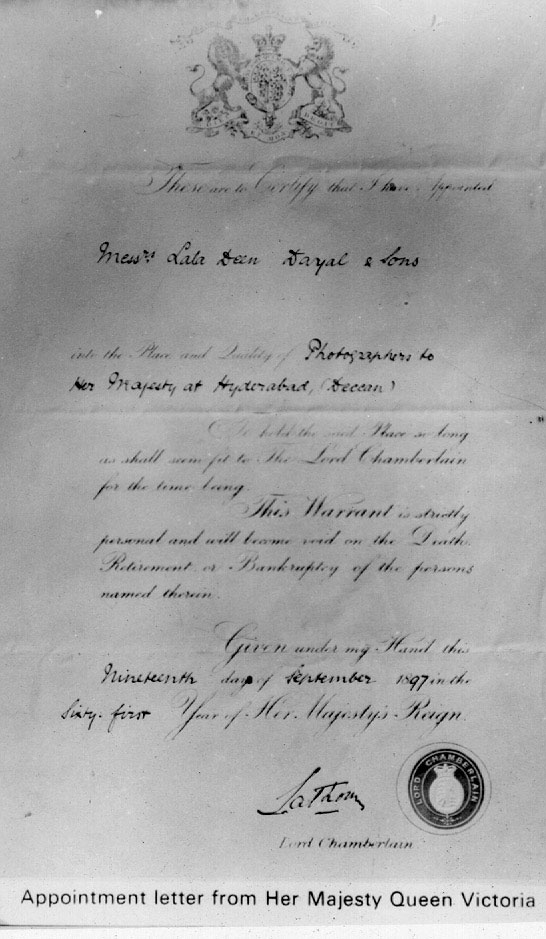 These are to Certify that I have Appointed
Messrs Lala Deen Dayal & Sons
into the Place and Quality of Photographers to
Her Majesty at Hyderabad, (Deccan)
To hold the said Place so long
as shall seem fit to The Lord Chamberlain
for the time being.
This Warrant is strictly
personal and will become void on the Death,
Retirement or Bankruptcy of the persons
named therein.
Given under my Hand this
Nineteenth day of September 1897 in the
Sixty-first Year of Her Majesty's Reign.
Lathom
LORD CHAMBERLAIN
Lord Chamberlain
Appointment letter from Her Majesty Queen Victoria